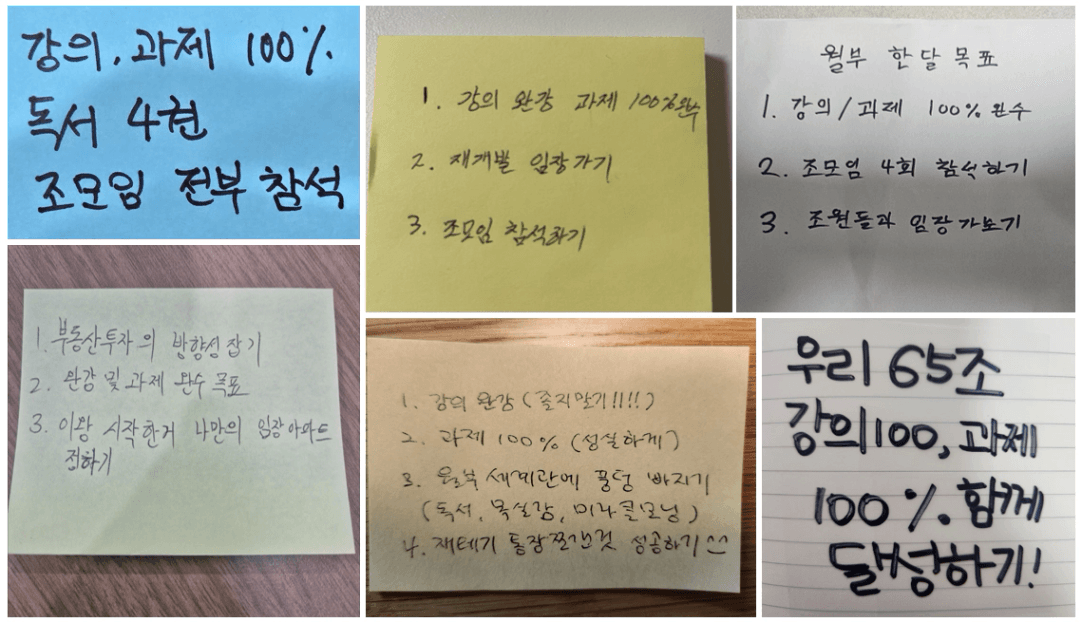 강의, 과제 100%
독서 4권
조모임 전부 참석
1. 강의 완강 과제 100%완수
2. 재개발 임장가기
3. 조모임 참석하기
월부 한달목표
1. 강의/과제 100% 완수
2. 조모임 4회 참석하기
3. 조원들과 임장가보기
1. 부동산투자의 방향성잡기
2. 완강 및 과제 완수 목표
3. 이왕 시작한거 나만의 임장아파트
정하기
1. 강의 완강 (졸지말기!!!!)
2. 과제 100% (성실하게)
3. 월부 세계관에 풍덩 빠지기
(독서, 목실감, 미라클모닝)
4. 재테기 통장쪼갠것 성공하기^^
우리 65조
강의100, 과제
100%. 함께
달성하기!